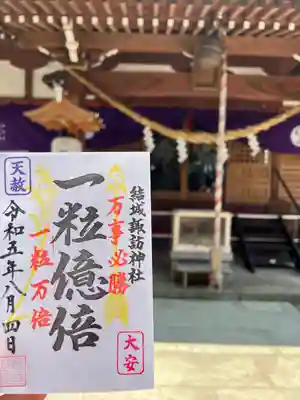 結城諏訪神社
万事必勝
大安
一粒億倍
一粒万倍
天赦
令和五年八月四日